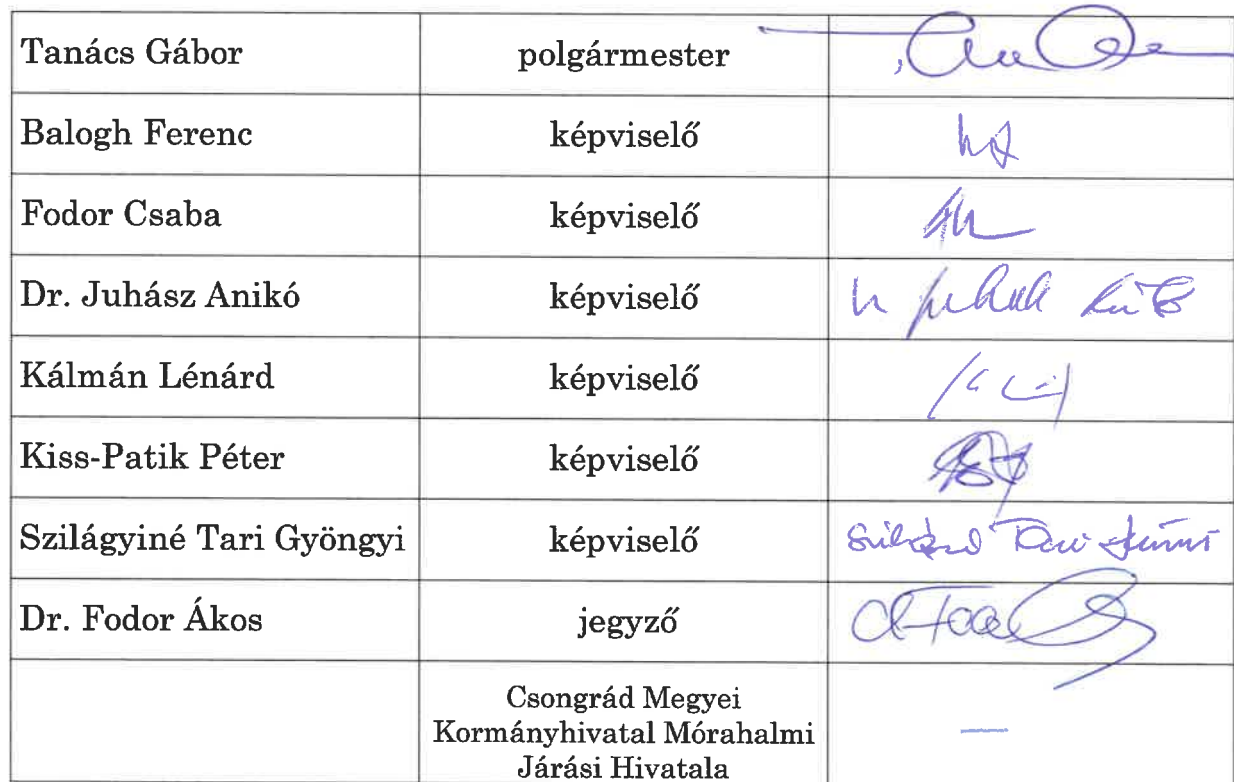 Tanács Gábor polgármester
Balogh Ferenc képviselő
Fodor Csaba képviselő
Dr. Juhász Anikó képviselő
Kálmán Lénárd képviselő
Kiss-Patik Péter képviselő
Szilágyiné Tari Gyöngyi képviselő
Dr. Fodor Ákos jegyző
Csongrád Megyei
Kormányhivatal Mórahalmi
Járási Hivatala
—